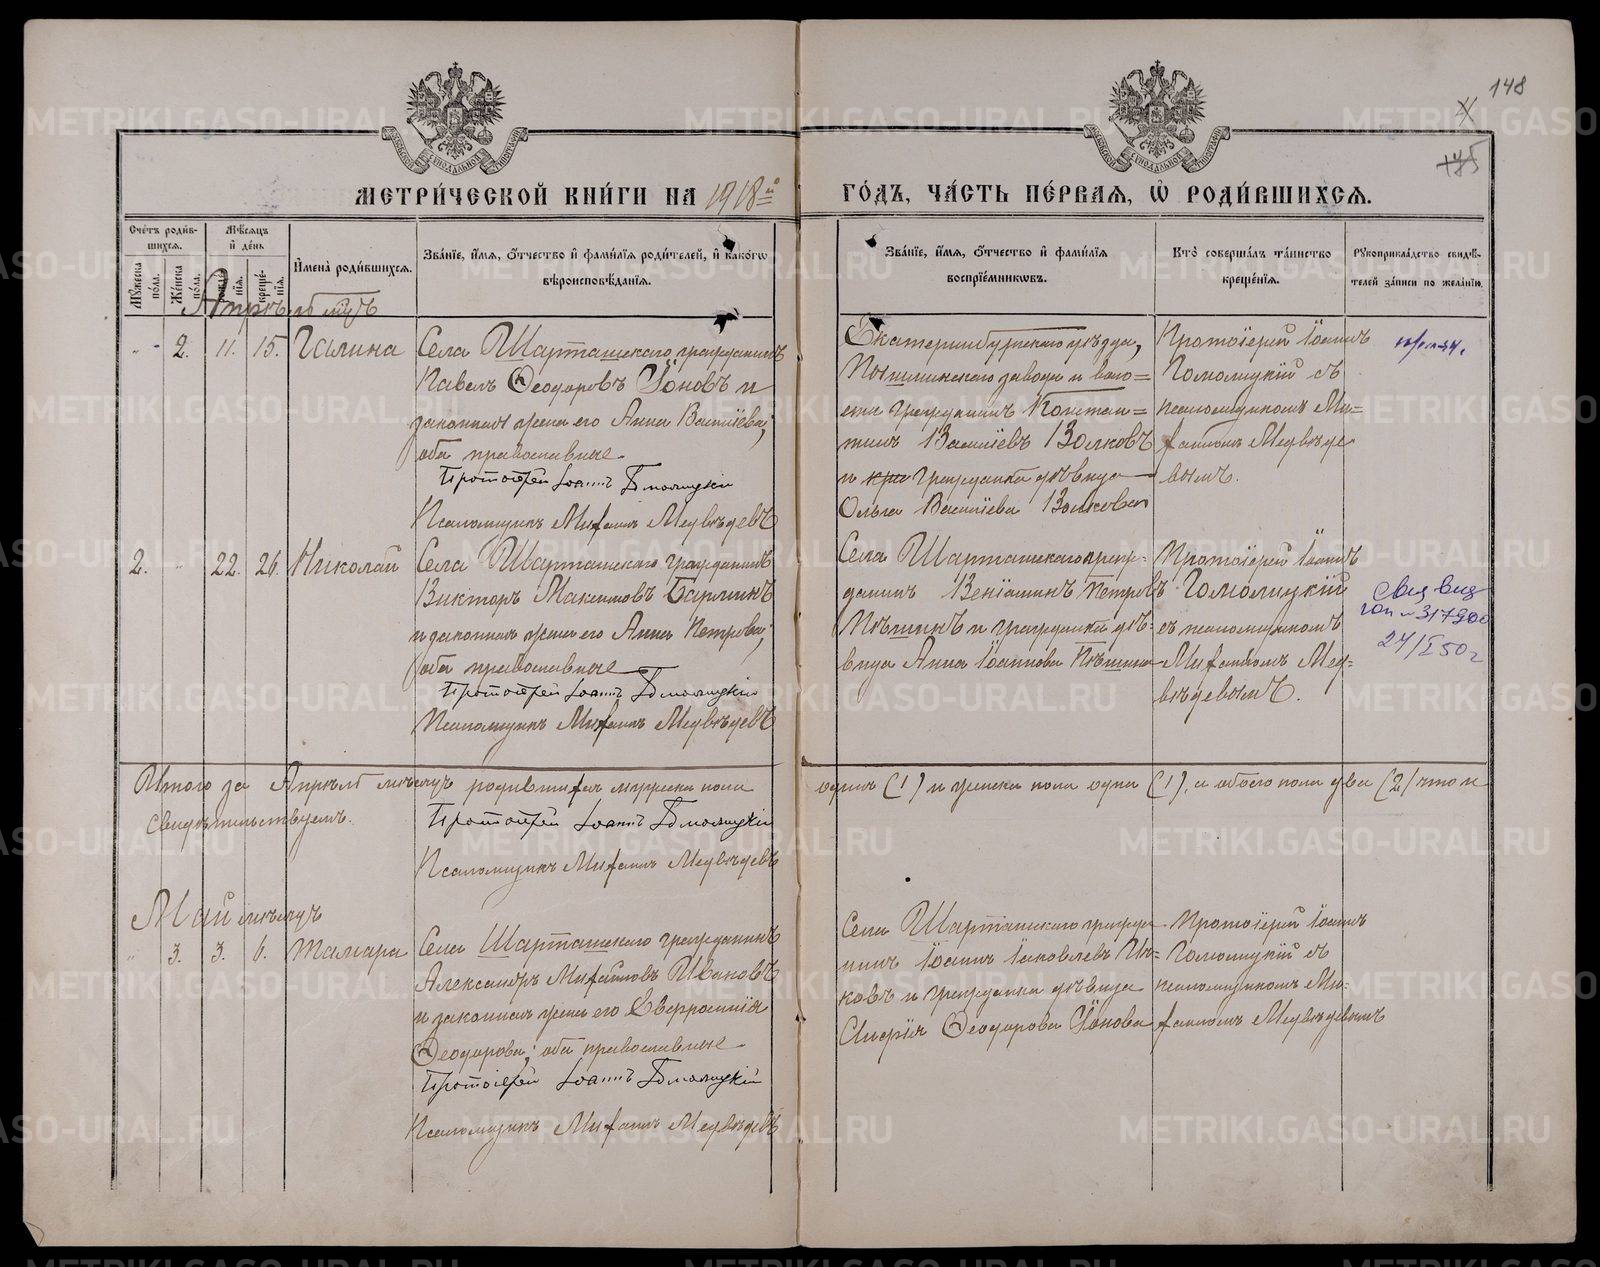 148
145
МЕТРИ́ЧЕСКОЙ КНИ́ГИ НА 1918й
ГО́ДЪ, ЧА́СТЬ ПЕ́РВАЯ, Ѡ РОДИ́ВШИХСЯ.
Сче́тъ роди́в-
шихся.
Му́жеска по́ла.
Же́нска по́ла.
Мѣ́сяцъ
и де́нь
креще́-
нія.
Имена́ роди́вшихся.
Зва́ніе, и́мя, о́тчество и фами́лія роди́телей, и како́гω
вѣроисповѣ́данія.
Зва́ніе, и́мя, о́тчество и фами́лія
воспріе́мникωвъ.
Кто̀ соверша́лъ та́инство
креще́нія.
Рꙋкоприкла́дство свидѣ́-
телей за́писи по жела́нію.
Апрѣль мцъ
2. 11. 15. Галина
Села Шарташскаго гражданинъ
Павелъ Ѳеодоровъ Іоновъ и
законная жена его Анна Василіева;
оба православные
Протоіерей Іоаннъ Гомолицкій
Псаломщикъ Михаилъ Медвѣдевъ
Екатеринбургскаго уѣзда,
Пышминскаго завода и воло=
сти гражданинъ Констан=
тинъ Василіевъ Волковъ
и гражданка дѣвица
Ольга Василіева Волкова
Протоіерей Іоаннъ
Гомолицкій съ
псаломщикомъ Ми=
хаиломъ Медвѣде
вымъ.
2. 22. 26. Николай
Села Шарташскаго гражданинъ
Викторъ Максимовъ Барминъ
и законная жена его Анна Петрова;
оба православные
Протоіерей Іоаннъ Гомолицкій
Псаломщикъ Михаилъ Медвѣдевъ
Села Шарташскаго граж-
данинъ Веніаминъ Петровъ
Пѣшинъ и гражданка дѣ-
вица Анна Іоаннова Пѣшина
Протоіерей Іоаннъ
Гомолицкій
съ псаломщикомъ
Михаиломъ Мед-
вѣдевымъ.
317900
24/I 50 г
Итого за Апрѣль мѣсяцъ родившихся мужеска пола
одинъ (1) и женска пола одна (1), а обоего пола два (2) что и
свидѣтельствуемъ.
Протоіерей Іоаннъ Гомолицкій
Псаломщикъ Михаилъ Медвѣдевъ
Май мѣсяцъ
3. 3. 6. Тамара
Села Шарташскаго гражданинъ
Александръ Михайловъ Ивановъ
и законная жена его Евфросинія
Ѳеодорова; оба православные
Протоіерей Іоаннъ Гомолицкій
Псаломщикъ Михаилъ Медвѣдевъ
Села Шарташскаго гражда
нинъ Іоаннъ Іаковлевъ
и гражданка дѣвица
Ѳеодорова Іонова
Протоіерей Іоаннъ
Гомолицкій съ
псаломщикомъ Ми-
хаиломъ Медвѣдевымъ
METRIKI.GASO-URAL.RU